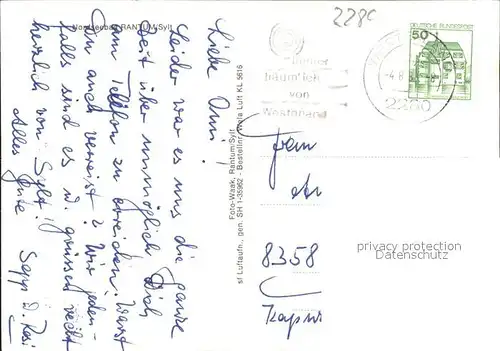 Nordseebad RANTUM/Sylt
Liebe Omi!
Leider war es uns die ganze
Zeit über unmöglich Dich
am Telefon zu erreichen. Warst
Du auch verreist? Wir jeden-
falls sind es u. grüssen recht
herzlich von Sylt!
Alles Gute
Sepp u. Resi
Foto-Waak, Rantum/Sylt
sf Luftaufn., gen. SH 1-35962 - Bestellnr. Wolfs Luft KL 5616
228c
immer
von
Westerland
2280
DEUTSCHE BUNDESPOST
50
Frau
8358
privacy protection
Datenschutz